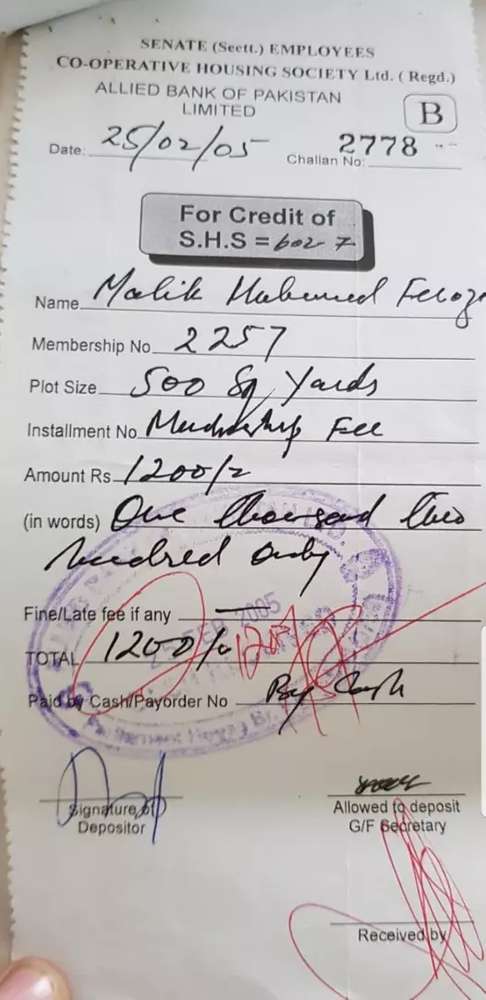 SENATE (Sectt.) EMPLOYEES
CO-OPERATIVE HOUSING SOCIETY Ltd. ( Regd.)
ALLIED BANK OF PAKISTAN
LIMITED
B
Date: 25/02/05
2778
Challan No:
For Credit of
S.H.S = 602-7
Name Malik Mehmud Feroz
Membership No 2257
Plot Size 500 Sq Yards
Installment No Membership Fee
Amount Rs 1200/=
(in words) One thousand two
hundred only
Fine/Late fee if any —
FEB 2005
TOTAL 1200/= 1200
Paid by Cash/Payorder No By Cash
Signature of
Depositor
Allowed to deposit
G/F Secretary
Received by